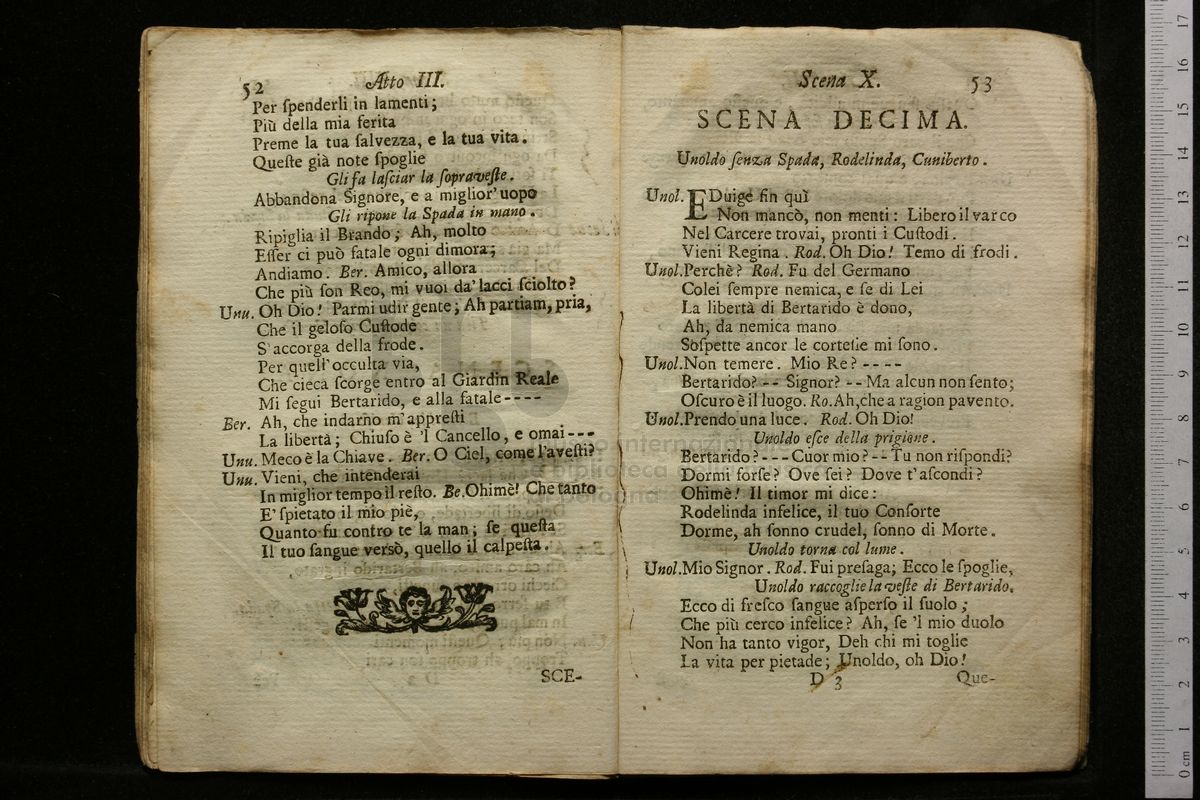 52 Atto III.
Per ſpenderli in lamenti;
Più della mia ferita
Preme la tua ſalvezza, e la tua vita.
Queſte già note ſpoglie
Gli fa laſciar la ſopraveſte.
Abbandona Signore, e a miglior' uopo
Gli ripone la Spada in mano.
Ripiglia il Brando; Ah, molto
Eſſer ci può fatale ogni dimora;
Andiamo. Ber. Amico, allora
Che più ſon Reo, mi vuoi da' lacci ſciolto?
Unu. Oh Dio! Parmi udir gente; Ah partiam, pria,
Che il geloſo Cuſtode
S'accorga della frode.
Per queſt'occulta via,
Che cieca ſcorge entro al Giardin Reale
Mi ſegui Bertarido, e alla fatale----
Ber. Ah, che indarno m'appreſti
La libertà; Chiuſo è 'l Cancello, e omai---
Unu. Meco è la Chiave. Ber. O Ciel, come l'aveſti?
Unu. Vieni, che intenderai
In miglior tempo il reſto. Be. Ohimè! Che tanto
E' ſpietato il mio piè,
Quanto fu contro te la man; ſe queſta
Il tuo ſangue versò, quello il calpeſta.
SCE-
Scena X. 53
SCENA DECIMA.
Unoldo ſenza Spada, Rodelinda, Cuniberto.
Unol. EDuige fin quì
Non mancò, non menti: Libero il varco
Nel Carcere trovai, pronti i Cuſtodi.
Vieni Regina. Rod. Oh Dio! Temo di frodi.
Unol. Perchè? Rod. Fu del Germano
Colei ſempre nemica, e ſe di Lei
La libertà di Bertarido è dono,
Ah, da nemica mano
Soſpette ancor le corteſie mi ſono.
Unol. Non temere. Mio Re? ----
Bertarido? -- Signor? -- Ma alcun non ſento;
Oſcuro è il luogo. Ro. Ah, che a ragion pavento.
Unol. Prendo una luce. Rod. Oh Dio!
Unoldo eſce della prigione.
Bertarido? --- Cuor mio? -- Tu non riſpondi?
Dormi forſe? Ove ſei? Dove t'aſcondi?
Ohimè! Il timor mi dice:
Rodelinda infelice, il tuo Conſorte
Dorme, ah ſonno crudel, ſonno di Morte.
Unoldo torna col lume.
Unol. Mio Signor. Rod. Fui preſaga; Ecco le ſpoglie,
Unoldo raccoglie la veſte di Bertarido.
Ecco di freſco ſangue aſperſo il ſuolo;
Che più cerco infelice? Ah, ſe 'l mio duolo
Non ha tanto vigor, Deh chi mi toglie
La vita per pietade; Unoldo, oh Dio!
D 3 Que-